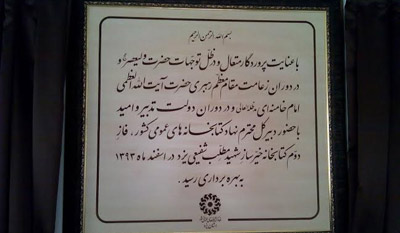 بسم الله الرحمن الرحیم
با عنایت پروردگار متعال و در ظل توجهات حضرت ولیعصر(عج) و
در دوران زعامت مقام معظم رهبری حضرت آیت الله العظمی
امام خامنه ای مدظله العالی و در دوران دولت تدبیر و امید
با حضور دبیرکل محترم نهاد کتابخانه های عمومی کشور . فاز
دوم کتابخانه خیّرساز شهید مطلب شفیعی یزد در اسفند ماه ۱۳۹۳
به بهره برداری رسید .